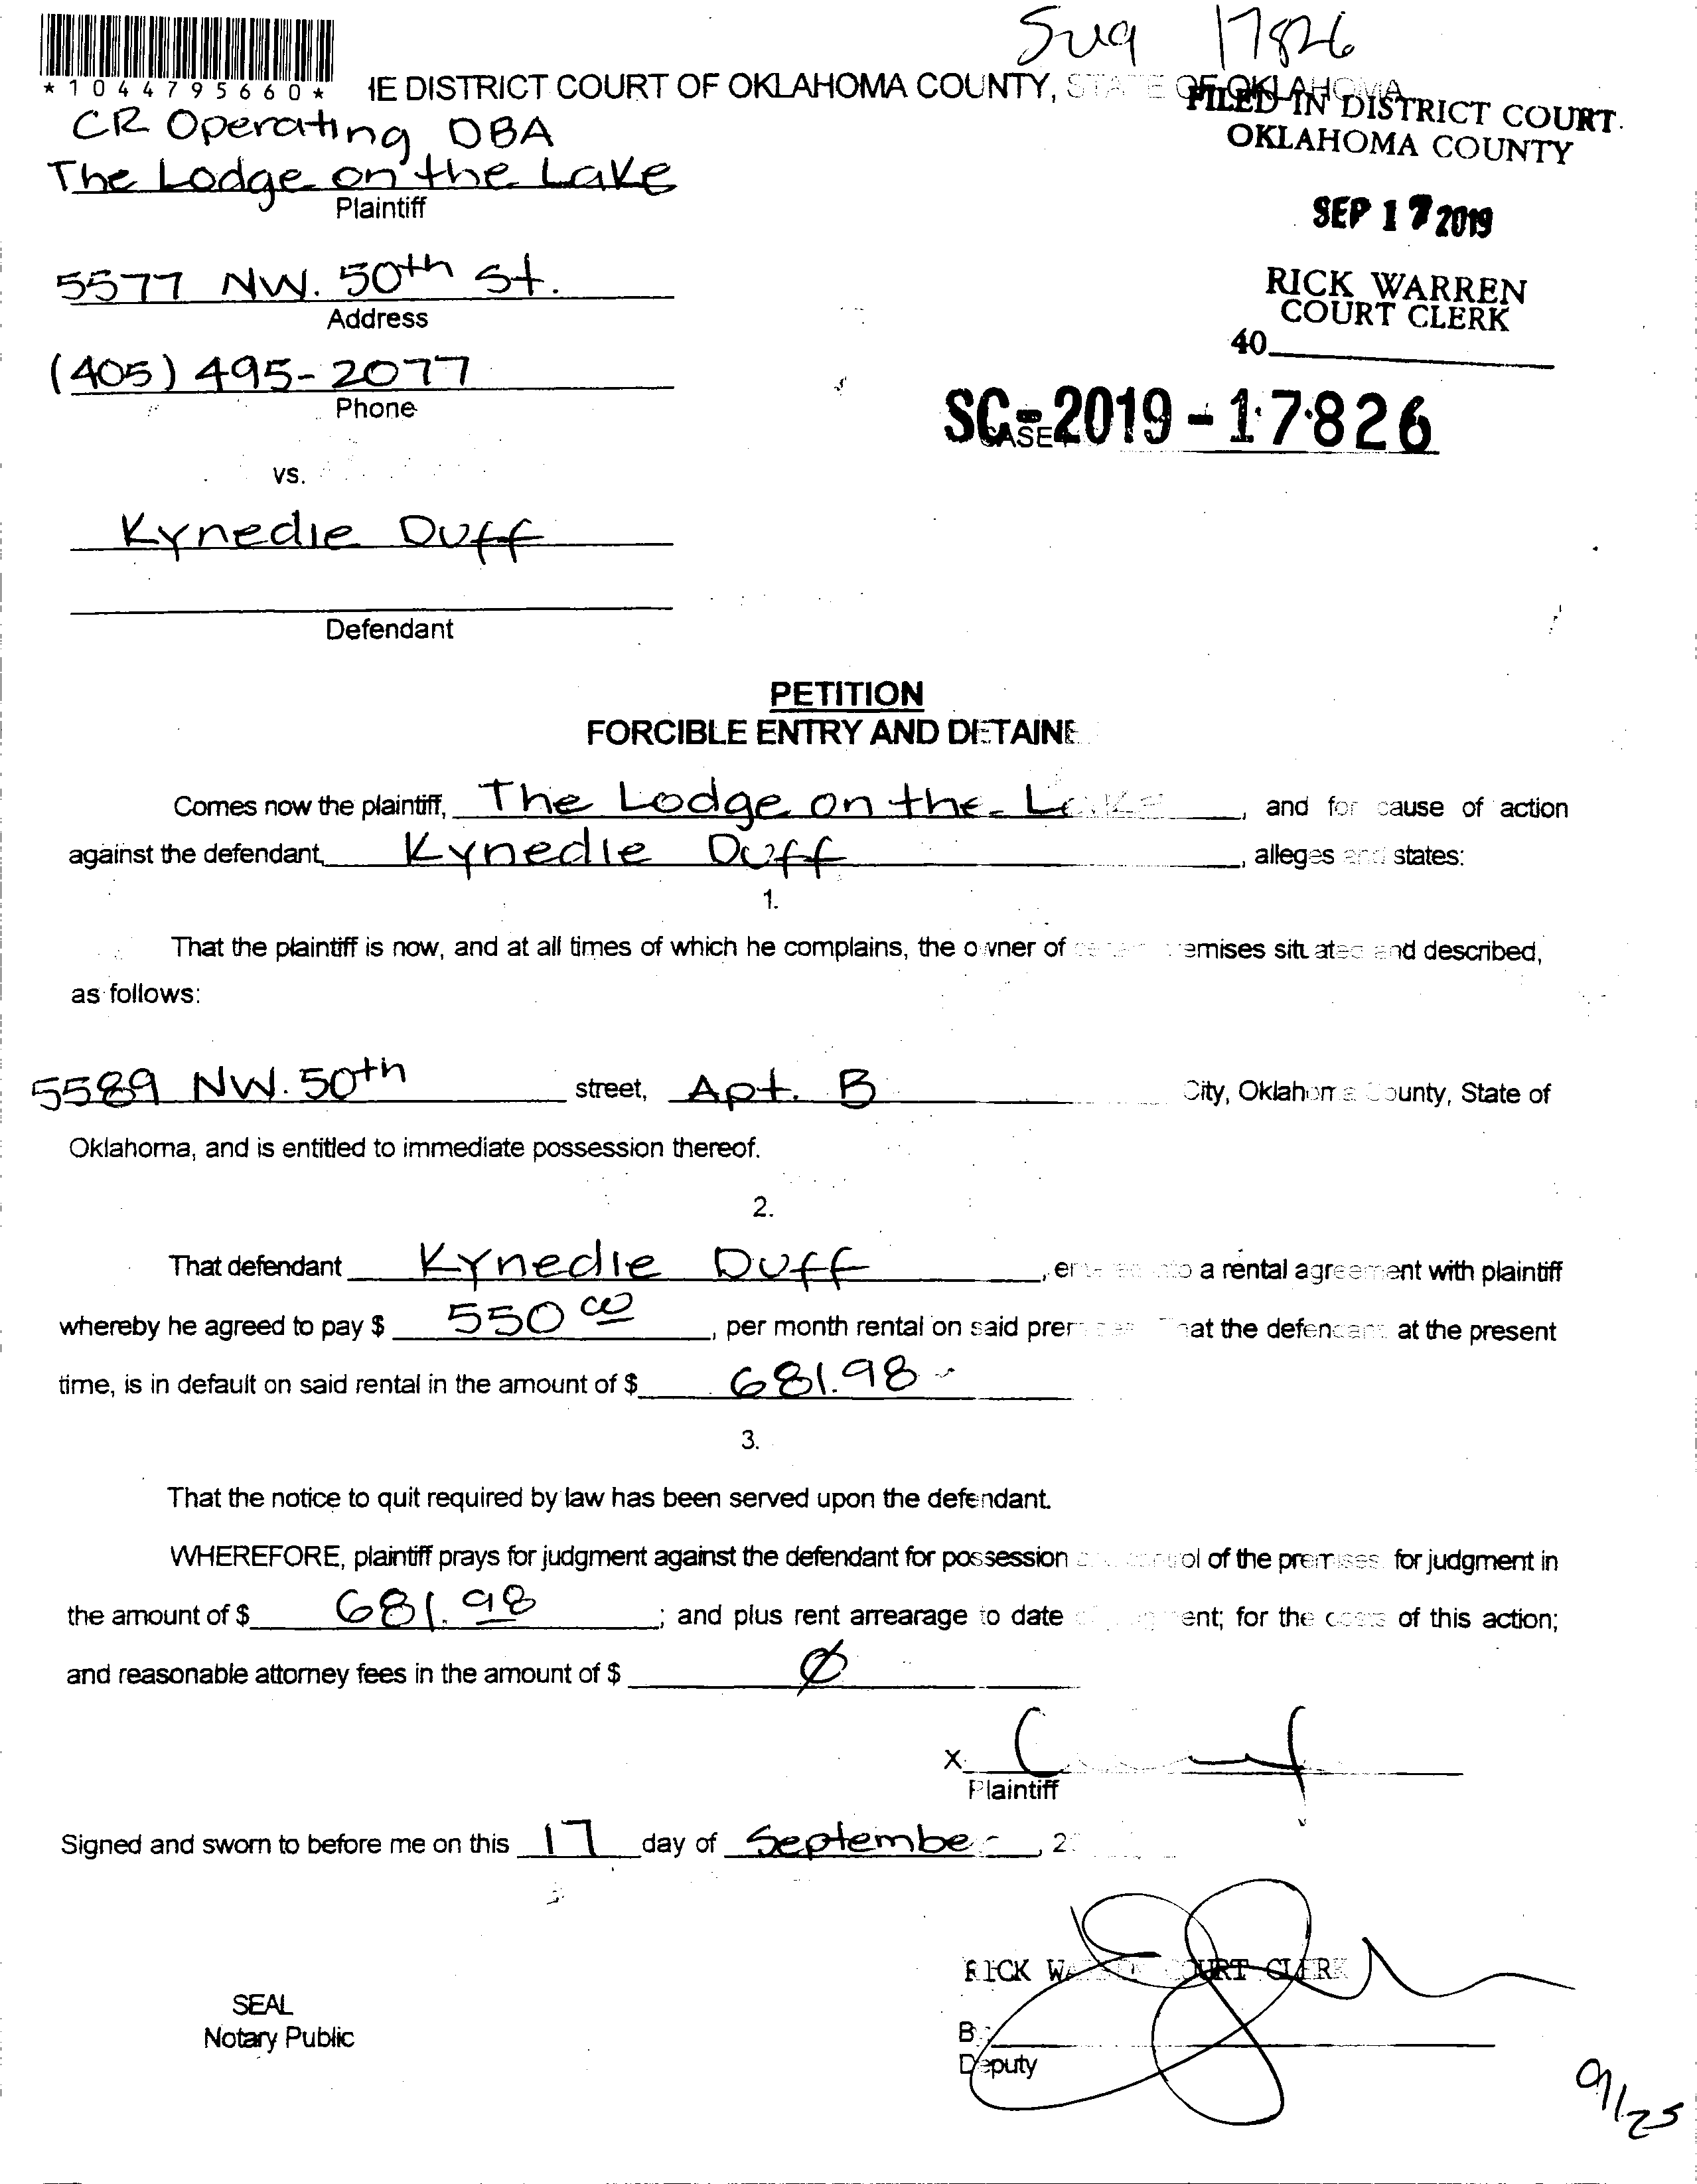 Sug 17826
*1044795660*
HE DISTRICT COURT OF OKLAHOMA COUNTY, STATE OF OKLAHOMA
FILED IN DISTRICT COURT
OKLAHOMA COUNTY
CR Operating DBA
The Lodge on the Lake
Plaintiff
SEP 17 2019
5577 NW. 50th St.
Address
RICK WARREN
COURT CLERK
40
(405) 495-2077
Phone
SC-2019-17826
CASE
vs.
Kynedie Duff
Defendant
PETITION
FORCIBLE ENTRY AND DETAINE
Comes now the plaintiff, The Lodge on the Lake, and for cause of action
against the defendant, Kynedie Duff, alleges and states:
1.
That the plaintiff is now, and at all times of which he complains, the owner of emises situated and described,
as follows:
5589 NW. 50th street, Apt. B City, Oklahoma County, State of
Oklahoma, and is entitled to immediate possession thereof.
2.
That defendant Kynedie Duff, entered into a rental agreement with plaintiff
whereby he agreed to pay $ 550 00, per month rental on said premises That the defendant at the present
time, is in default on said rental in the amount of $ 681.98
3.
That the notice to quit required by law has been served upon the defendant.
WHEREFORE, plaintiff prays for judgment against the defendant for possession control of the premises for judgment in
the amount of $ 681.98; and plus rent arrearage to date ent; for the costs of this action;
and reasonable attorney fees in the amount of $ Ø
X
Plaintiff
Signed and sworn to before me on this 17 day of September, 2
RICK WARREN COURT CLERK
SEAL
Notary Public
By
Deputy
9/25